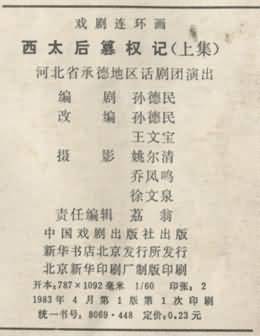 戏剧连环画
西太后篡权记(上集)
河北省承德地区话剧团演出
编 剧 孙德民
改 编 孙德民
王文宝
摄 影 姚尔清
乔凤鸣
徐文泉
责任编辑 荔 翁
中国戏剧出版社出版
新华书店北京发行所发行
北京新华印刷厂制版印刷
开本:787×1092毫米 1/60 印张:2
1983年4月第1版第1次印刷
统一书号:8069·448 定价:0.23元